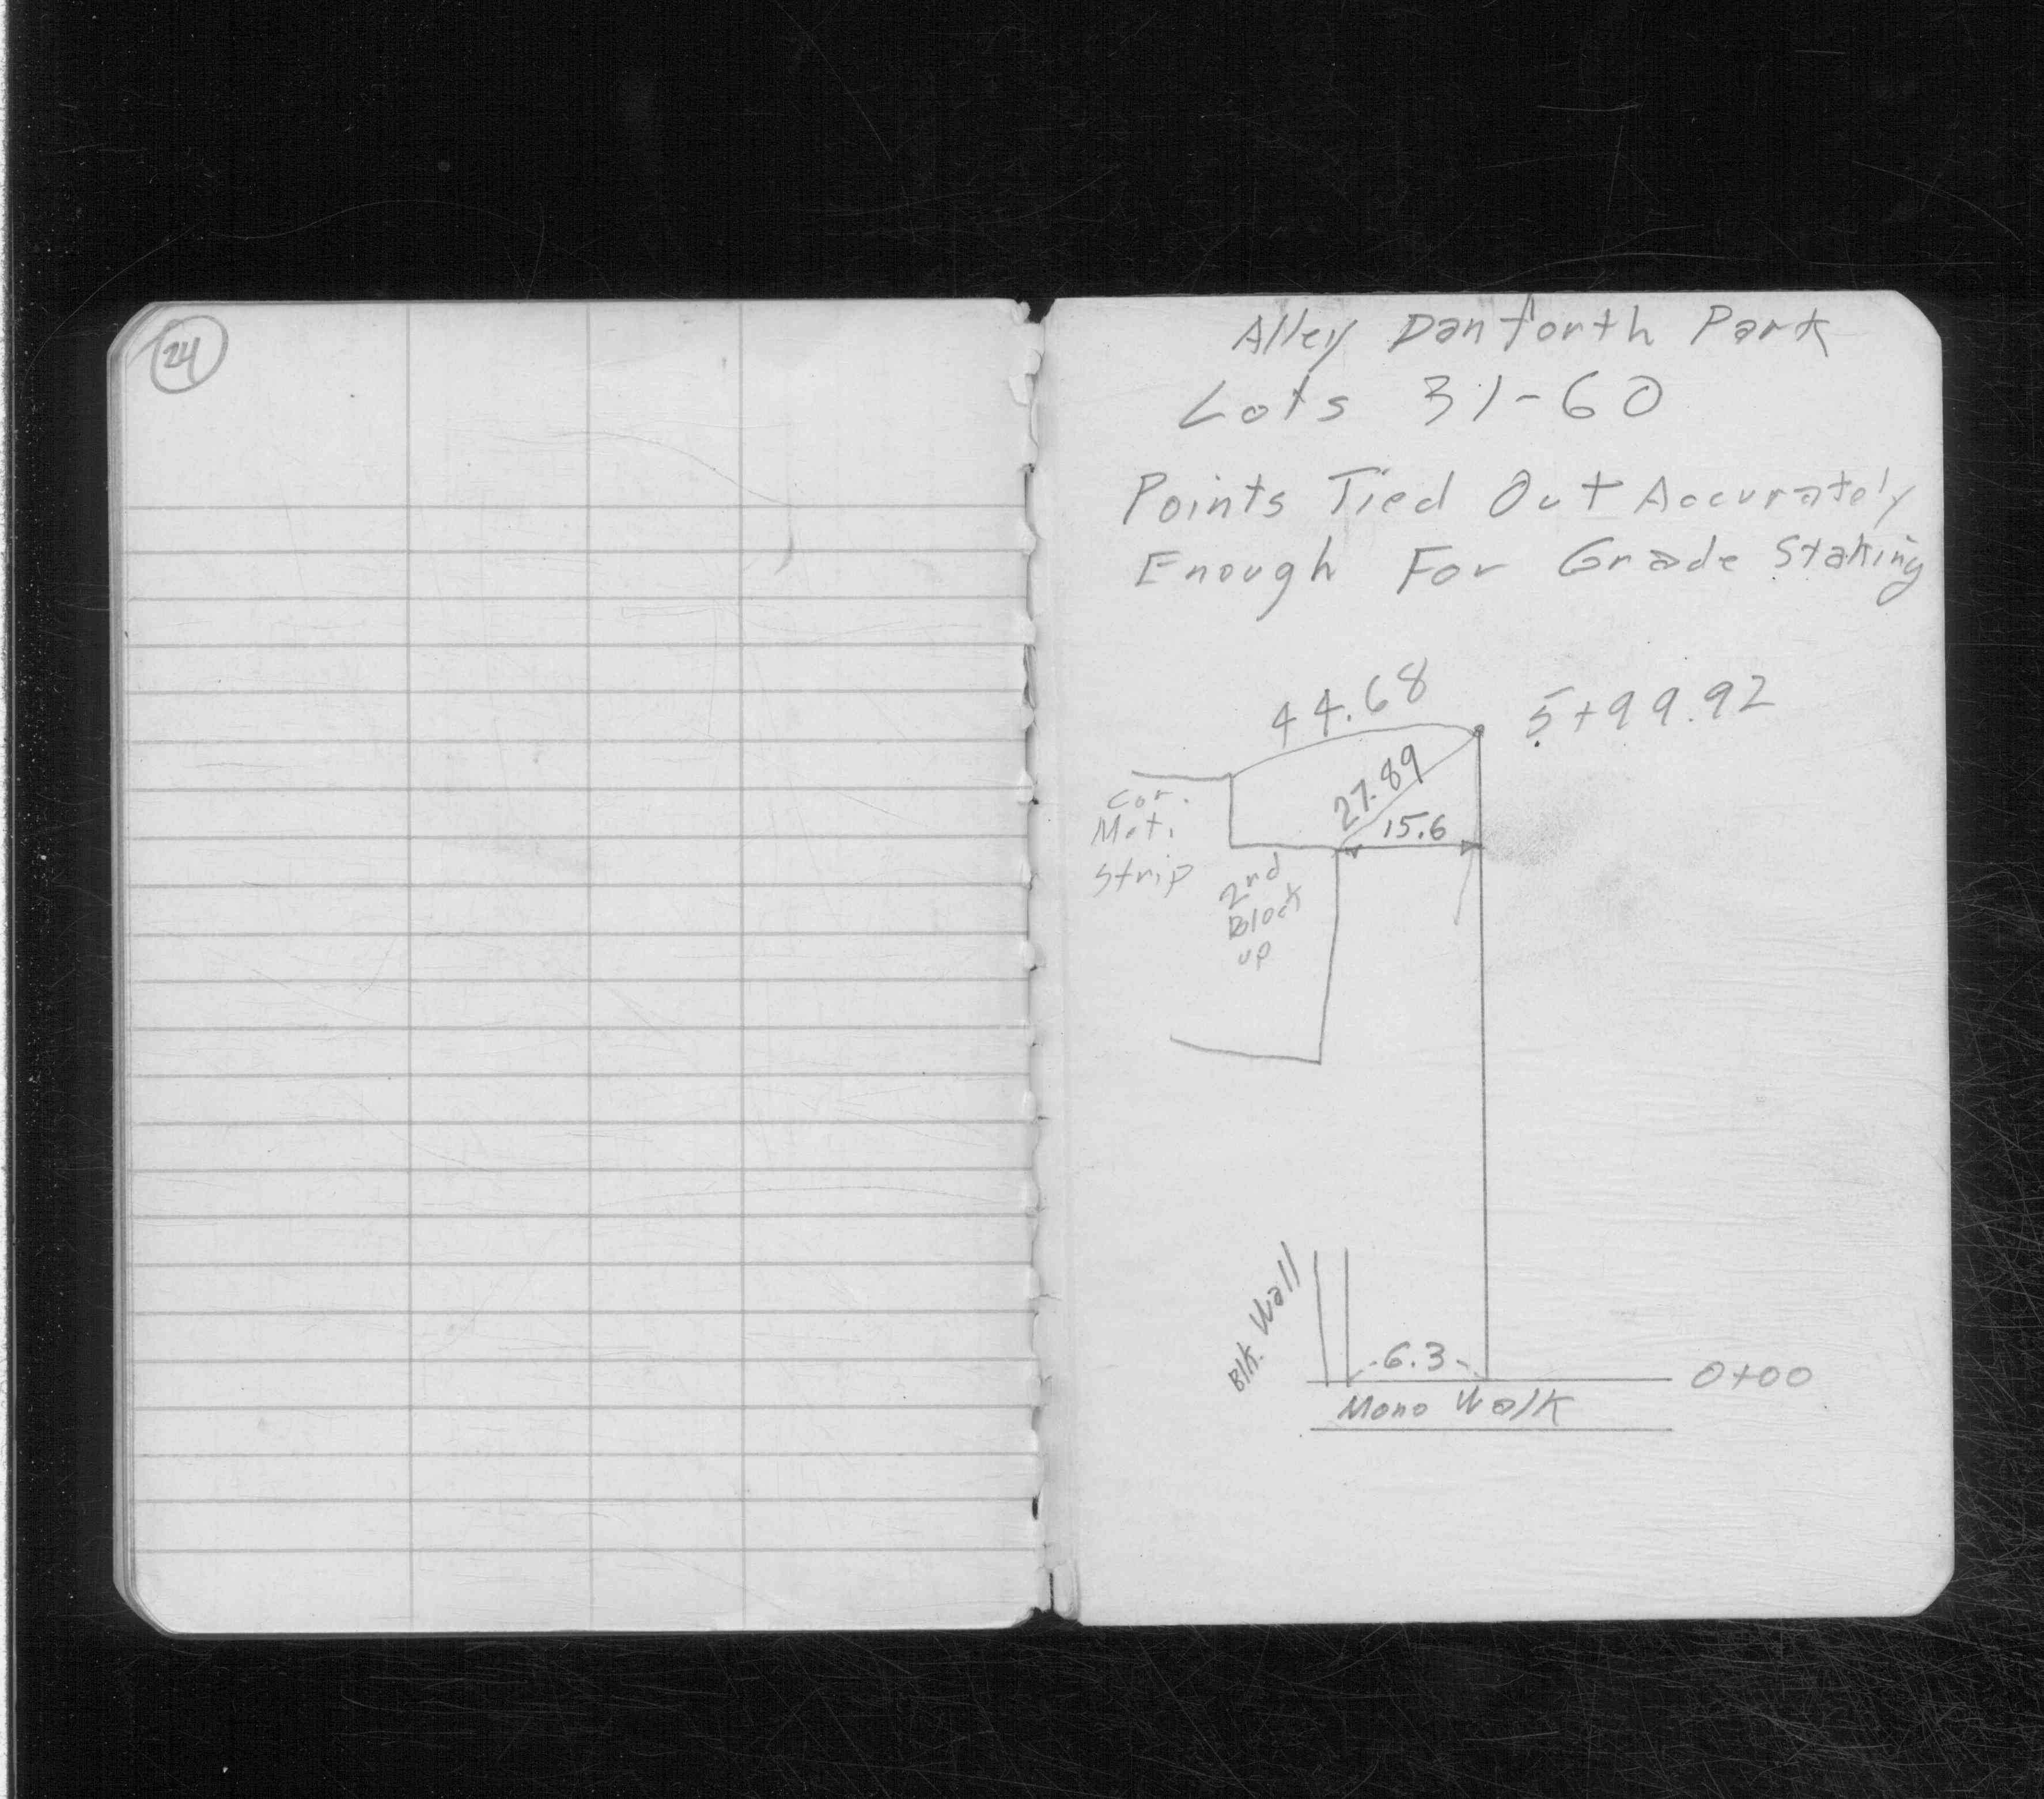 24
Alley Danforth Park
Lots 31-60
Points Tied Out Accurately
Enough For Grade Staking
44.68
5+99.92
27.89
15.6
Cor.
Met.
Strip
2nd
Block
up
Blk. Wall
6.3
0+00
Mono Walk